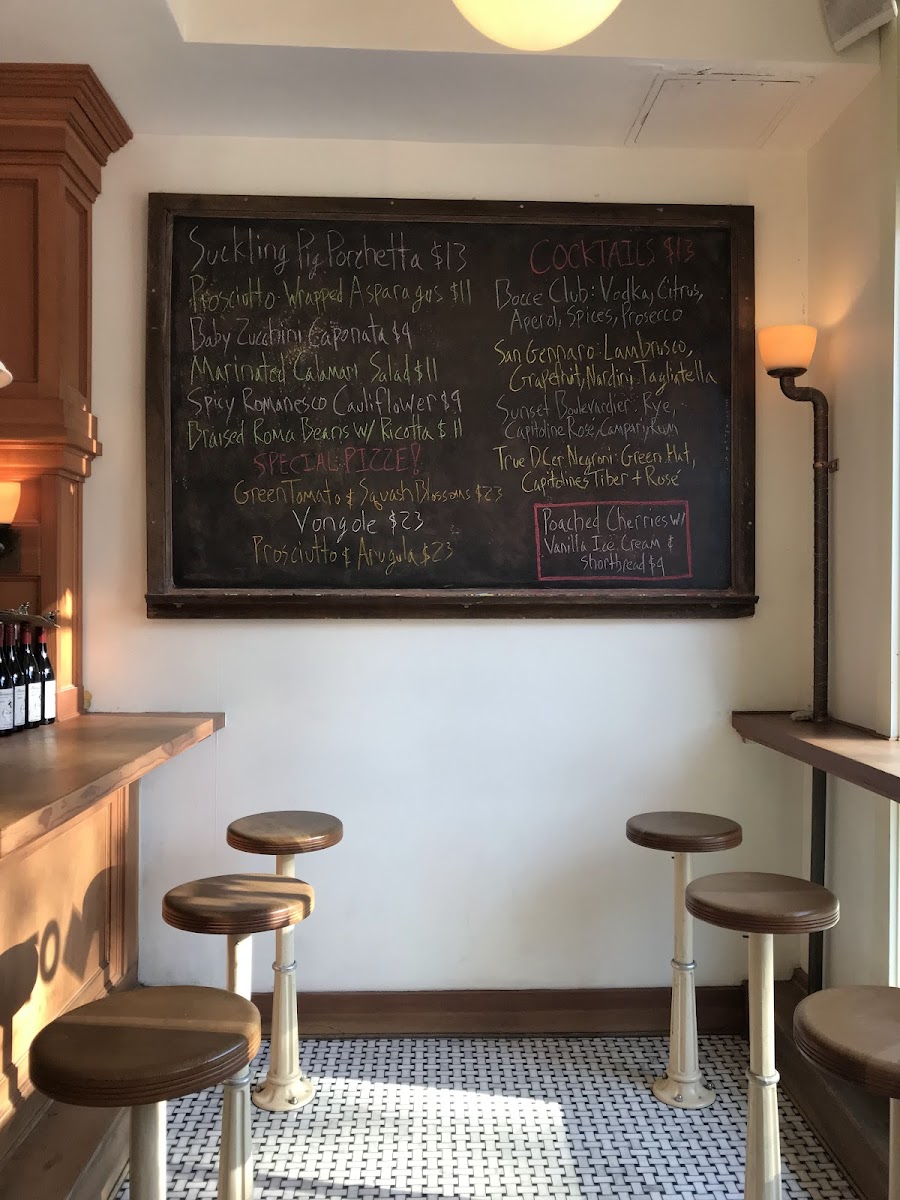 Suckling Pig Porchetta $13
Prosciutto Wrapped Asparagus $11
Baby Zucchini Caponata $9
Marinated Calamari Salad $11
Spicy Romanesco Cauliflower $9
Braised Roma Beans w/ Ricotta $11
SPECIAL PIZZE!
Green Tomato & Squash Blossoms $23
Vongole $23
Prosciutto & Arugula $23
COCKTAILS $13
Bocce Club: Vodka, Citrus,
Aperol, Spices, Prosecco
San Gennaro: Lambrusco,
Grapefruit, Nardini Tagliatella
Sunset Boulevardier: Rye,
Capitoline Rosé, Campary, Rum
True DCer Negroni: Green Hat,
Capitolines Tiber + Rosé
Poached Cherries w/
Vanilla Ice Cream &
shortbread $9